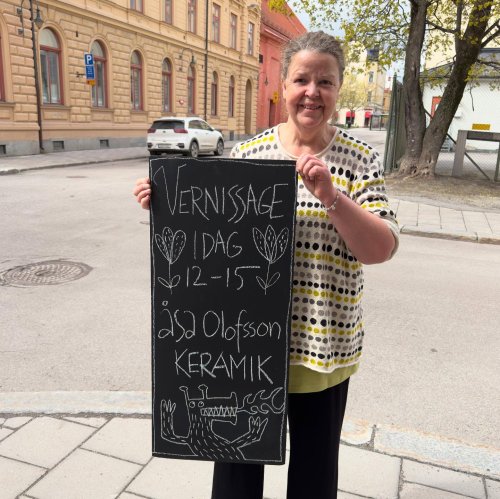 VERNISSAGE
IDAG
12-15
åsa Olofsson
KERAMIK
P